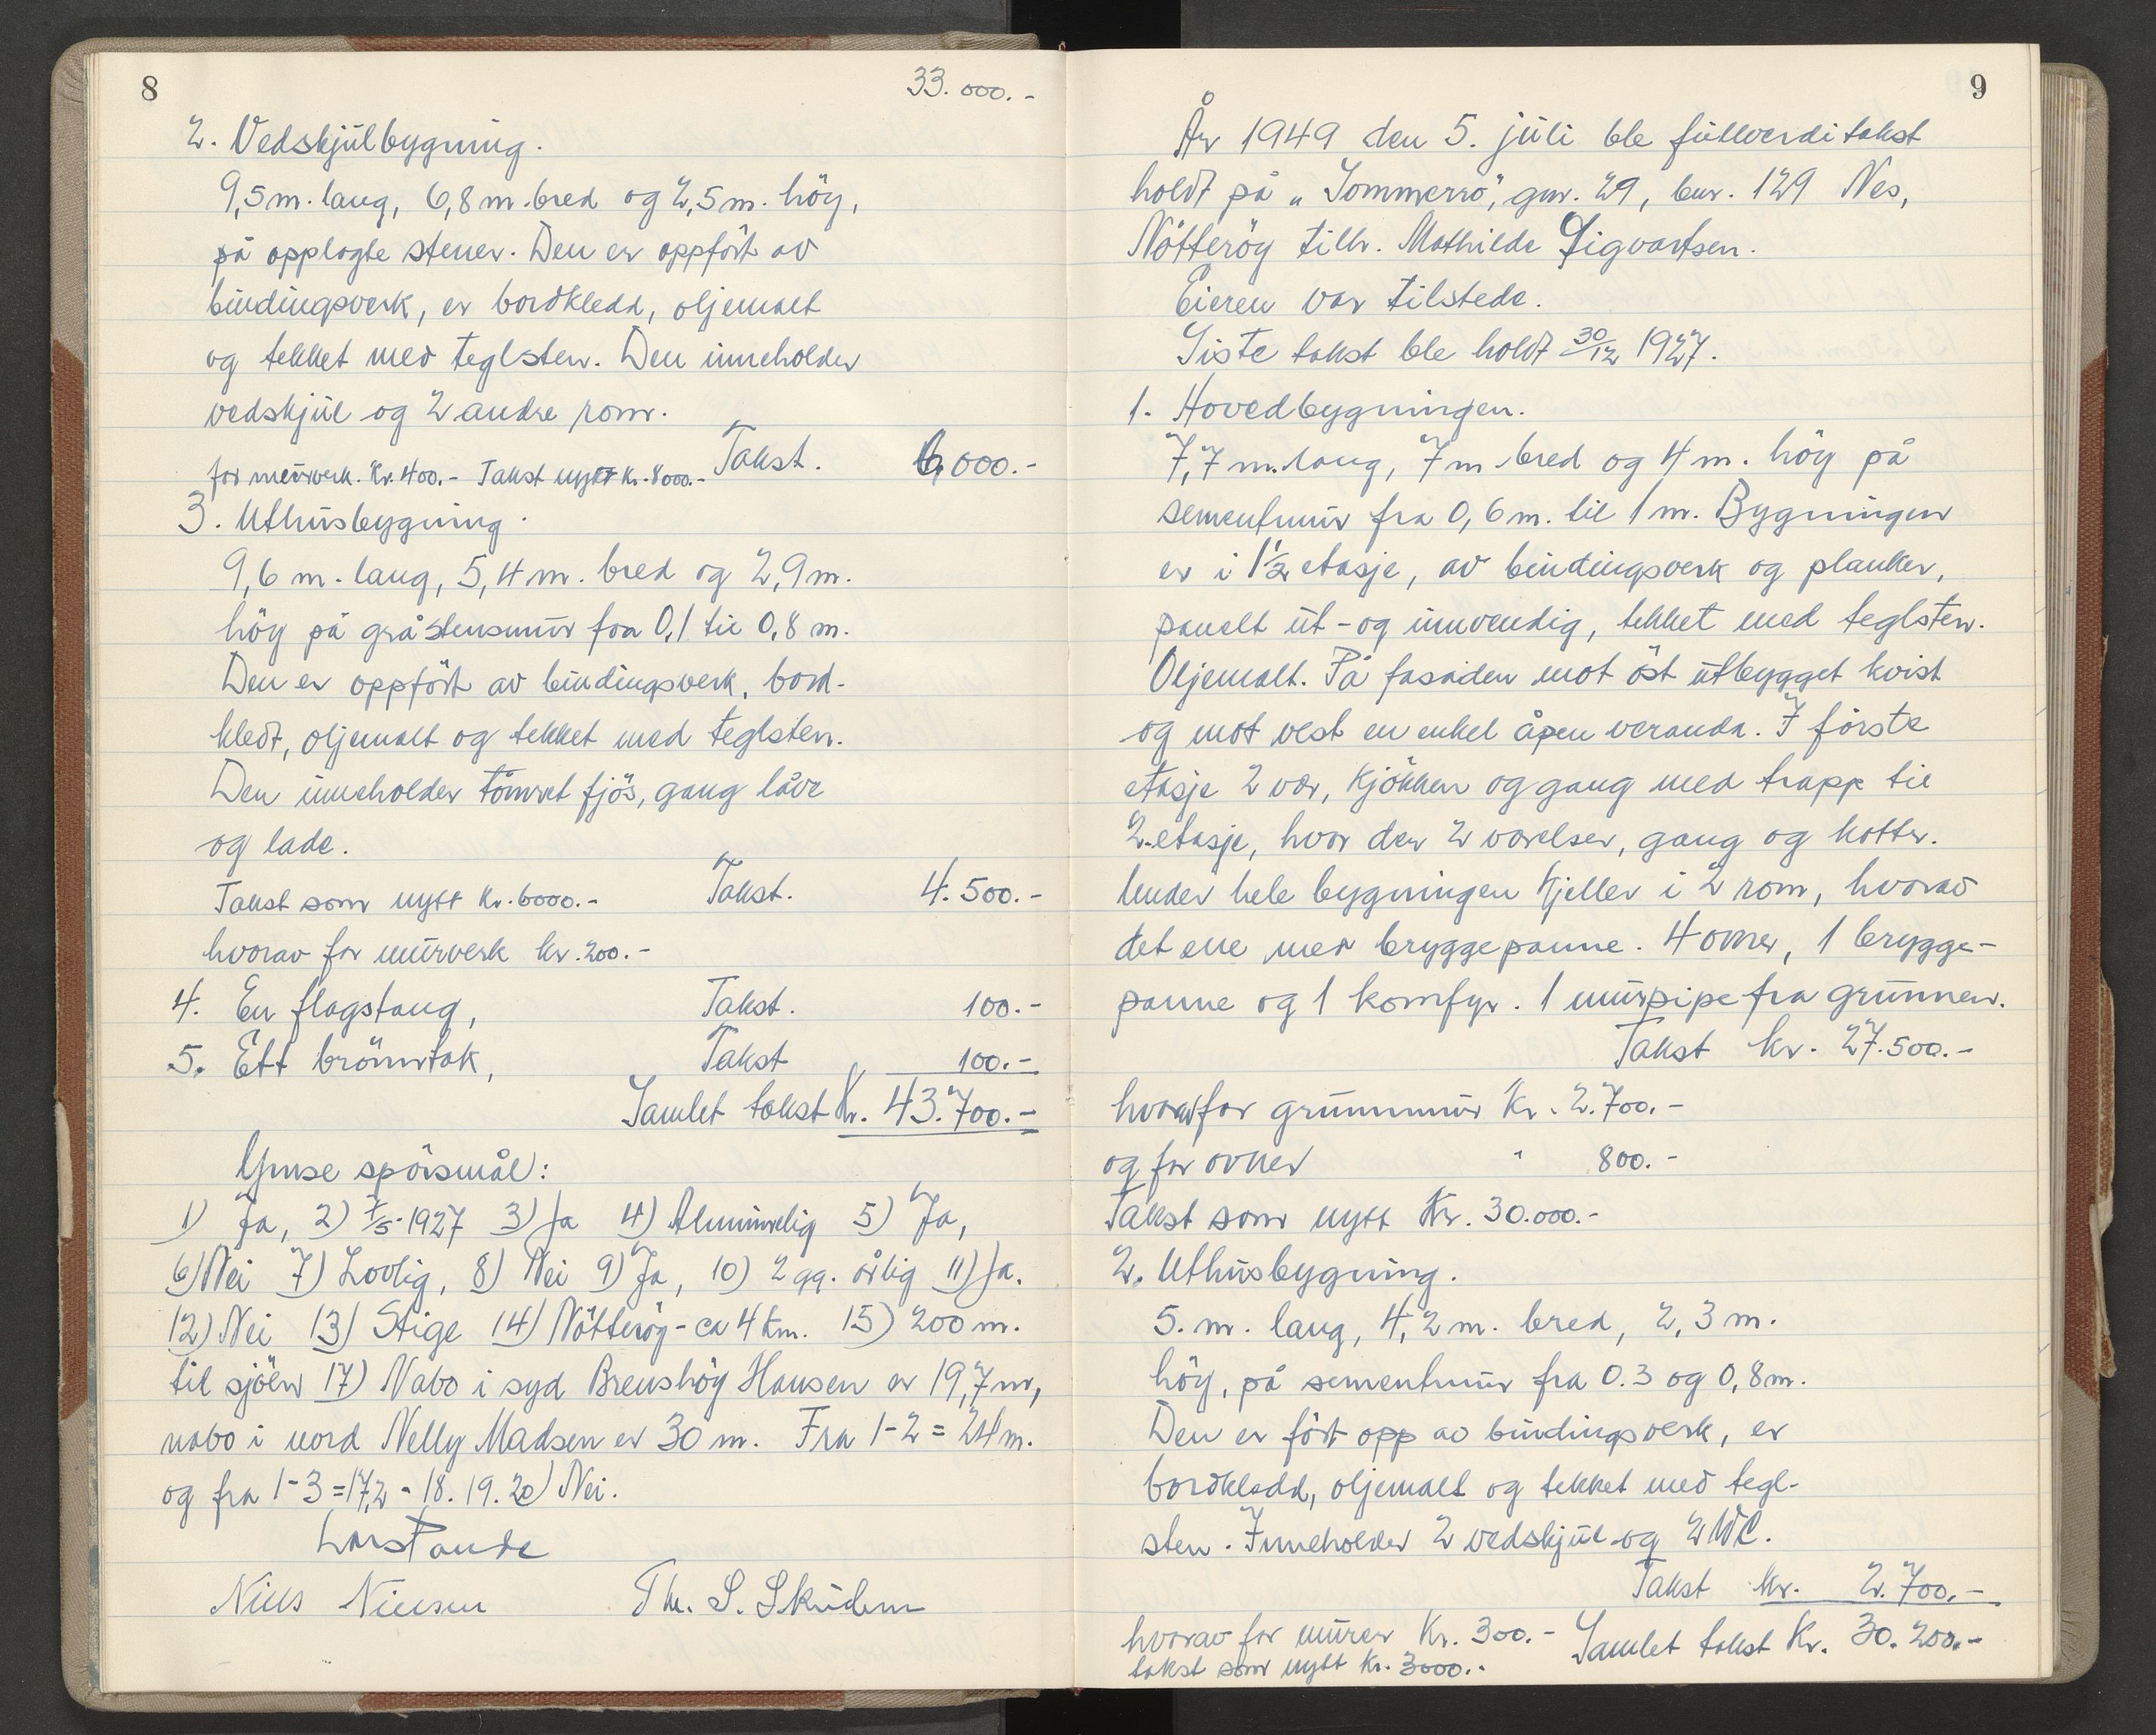 8
33.000.-
2. Vedskjulbygning.
9,5 m. lang, 6,8 m. bred og 2,5 m. hög,
på opplagte stener. Den er oppfört av
bindingsverk, er bordkledd, oljemalt
og tekket med teglsten. Den inneholder
vedskjul og 2 andre rom.
for murverk. Kr. 400.- Takst nytt Kr. 8000.- Takst. 6.000.-
3. Uthusbygning.
9,6 m. lang, 5,4 m. bred og 2,9 m.
hög på gråstensmur fra 0,1 til 0,8 m.
Den er oppfört av bindingsverk, bord-
kledt, oljemalt og tekket med teglsten.
Den inneholder tömret fjös, gang låve
og lade.
Takst som nytt Kr. 6000.- Takst. 4.500.-
hvorav for murverk kr. 200.-
4. En flagstang, Takst. 100.-
5. Ett brönntak, Takst 100.-
Samlet takst Kr. 43.700.-
Ymse spörsmål:
1) Ja, 2) 7/5-1927 3) Ja 4) Alminnelig 5) Ja,
6) Nei 7) Lovlig, 8) Nei 9) Ja, 10) 2 gg. årlig 11) Ja.
12) Nei 13) Stige 14) Nötteröy - ca 4 km. 15) 200 m.
til sjöen 17) Nabo i syd Brenshög Hansen er 19,7 m,
nabo i nord Nelly Madsen er 30 m. Fra 1-2 = 24 m.
og fra 1-3 = 17,2 - 18. 19. 20) Nei.
Lars Tande
Niels Nielsen Th. S. Skudem
9
År 1949 den 5. juli ble fullverditakst
holdt på "Sommerro", gnr. 29, bnr. 129 Nes,
Nötteröy tilh. Mathilde Sigvartsen.
Eieren var tilstede.
Siste takst ble holdt 30/12 1927.
1. Hovedbygningen.
7,7 m. lang, 7 m bred og 4 m. hög på
sementmur fra 0,6 m. til 1 m. Bygningen
er i 1 1/2 etasje, av bindingsverk og planker,
panelt ut- og innvendig, tekket med teglsten.
Oljemalt. På fasaden mot öst utbygget kvist
og mot vest en enkel åpen veranda. I förste
etasje 2 vær, kjökken og gang med trapp til
2. etasje, hvor der 2 værelser, gang og kotter.
Under hele bygningen kjeller i 2 rom, hvorav
det ene med bryggepanne. 4 ovner, 1 brygge-
panne og 1 komfyr. 1 murpipe fra grunnen.
Takst kr. 27.500.-
hvorav for grunnmur Kr. 2.700.-
og for ovner " 800.-
Takst som nytt Kr. 30.000.-
2. Uthusbygning.
5. m. lang, 4,2 m. bred, 2,3 m.
hög, på sementmur fra 0.3 og 0,8 m.
Den er fört opp av bindingsverk, er
bordkledd, oljemalt og tekket med tegl-
sten. Inneholder 2 vedskjul og 2 WC.
Takst kr. 2.700.-
hvorav for murer Kr. 300.- Samlet takst Kr. 30.200.-
takst som nytt Kr. 3000.-